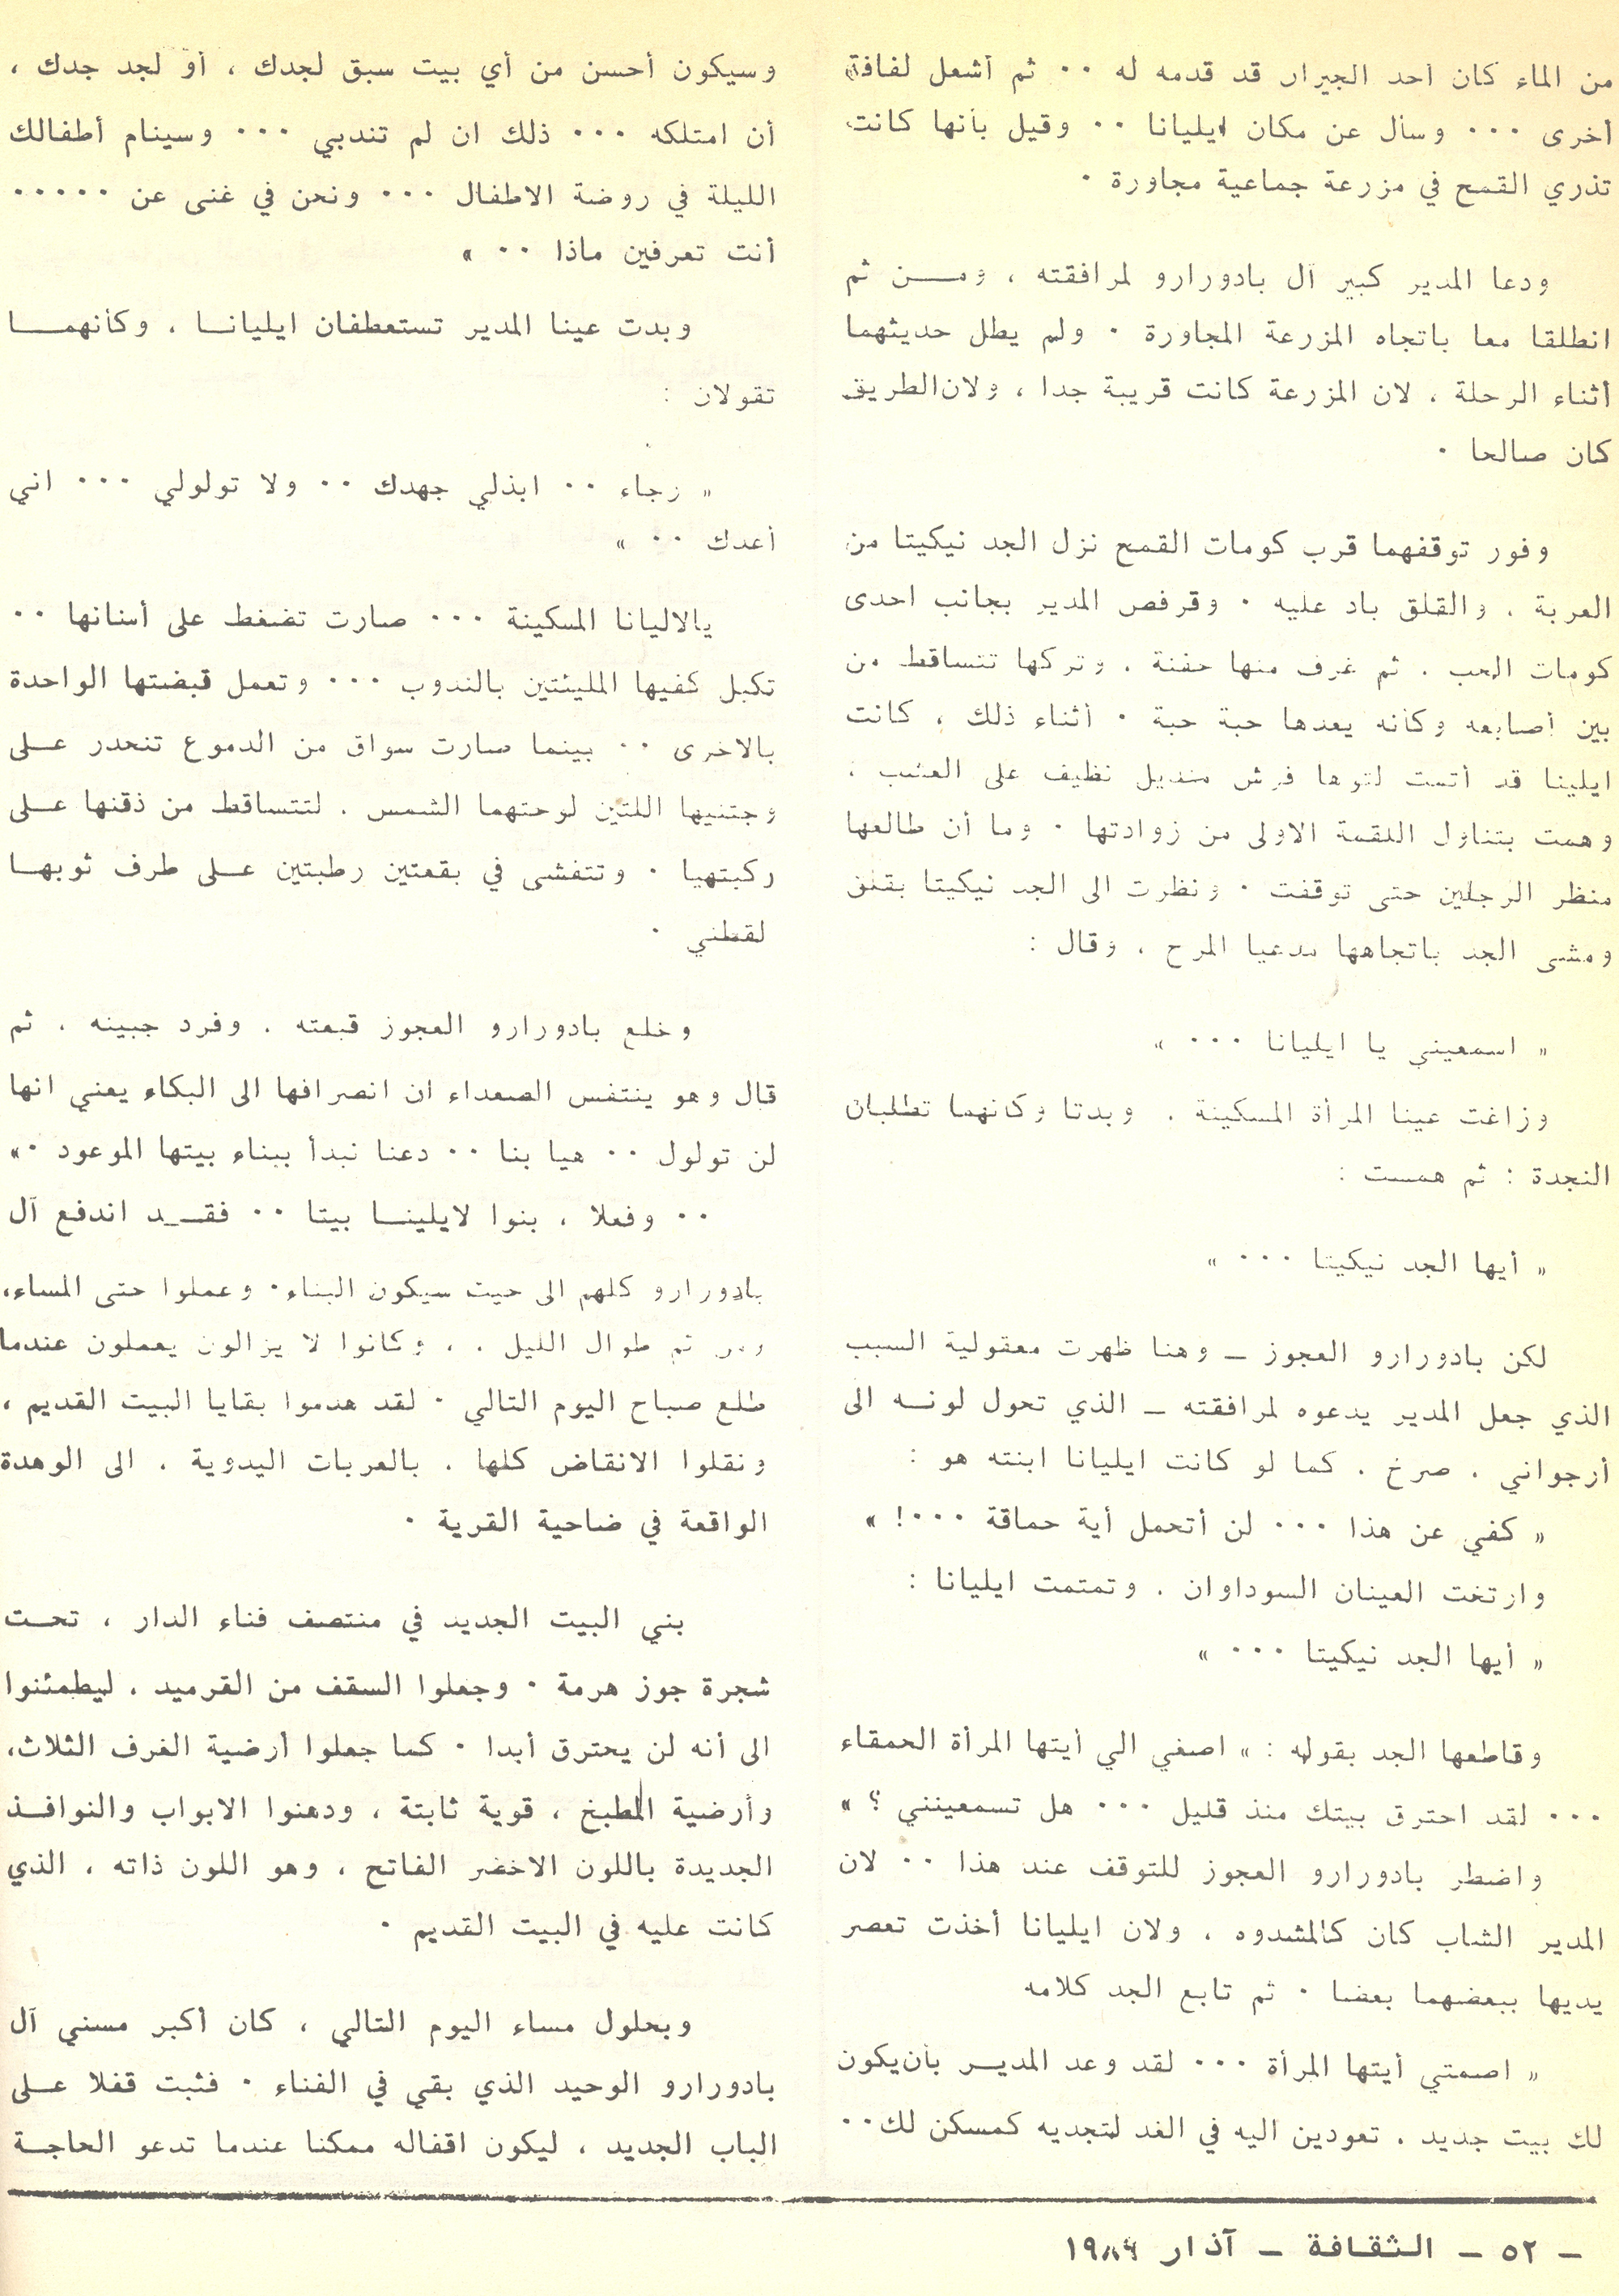 من الماء كان أحد الجيران قد قدمه له ٠٠ ثم أشعل لفافة
أخرى ٠٠٠ وسأل عن مكان ايليانا ٠٠ وقيل بأنها كانت
تذري القمح في مزرعة جماعية مجاورة ٠
ودعا المدير كبير آل بادورارو لمرافقته ، ومــن ثم
انطلقا معا باتجاه المزرعة المجاورة ٠ ولم يطل حديثهما
أثناء الرحلة ، لان المزرعة كانت قريبة جدا ، ولان الطريق
كان صالحا ٠
وفور توقفهما قرب كومات القمح نزل الجد نيكيتا من
العربة ، والقلق باد عليه ٠ وقرفص المدير بجانب احدى
كومات الحب ، ثم غرف منها حفنة ، وتركها تتساقط من
بين أصابعه وكأنه يعدها حبة حبة ٠ أثناء ذلك ، كانت
ايلينا قد أتمت لتوها فرش منديل نظيف على العشب ،
وهمت بتناول اللقمة الاولى من زوادتها ٠ وما أن طالعها
منظر الرجلين حتى توقفت ٠ ونظرت الى الجد نيكيتا بقلق
ومشى الجد باتجاهها مدعيا المرح ، وقال :
« اسمعيني يا ايليانا ٠٠٠ »
وزاغت عينا المرأة المسكينة ، وبدتا وكأنهما تطلبان
النجدة : ثم همست :
« أيها الجد نيكيتا ٠٠٠ »
لكن بادورارو العجوز ــ وهنا ظهرت معقولية السبب
الذي جعل المدير يدعوه لمرافقته ــ الذي تحول لونــه الى
أرجواني ، صرخ ، كما لو كانت ايليانا ابنته هو :
« كفي عن هذا ٠٠٠ لن أتحمل أية حماقة ٠٠٠! »
وارتخت العينان السوداوان ، وتمتمت ايليانا :
« أيها الجد نيكيتا ٠٠٠ »
وقاطعها الجد بقوله : « اصغي الي أيتها المرأة الحمقاء
٠٠٠ لقد احترق بيتك منذ قليل ٠٠٠ هل تسمعينني ؟ »
واضطر بادورارو العجوز للتوقف عند هذا ٠٠ لان
المدير الشاب كان كالمشدوه ، ولان ايليانا أخذت تعصر
يديها ببعضهما بعضا ٠ ثم تابع الجد كلامه
« اصمتي أيتها المرأة ٠٠٠ لقد وعد المديــر بأن يكون
لك بيت جديد ، تعودين اليه في الغد لتجديه كمسكن لك ٠٠
وسيكون أحسن من أي بيت سبق لجدك ، أو لجد جدك ،
أن امتلكه ٠٠٠ ذلك ان لم تندبي ٠٠٠ وسينام أطفالك
الليلة في روضة الاطفال ٠٠٠ ونحن في غنى عن ٠٠٠٠٠
أنت تعرفين ماذا ٠٠ »
وبدت عينا المدير تستعطفان ايليانــا ، وكأنهمــا
تقولان :
« رجاء ٠٠ ابذلي جهدك ٠٠ ولا تولولي ٠٠٠ اني
أعدك ٠٠ »
يالاليانا المسكينة ٠٠٠ صارت تضغط على أسنانها ٠٠
تكبل كفيها المليئتين بالندوب ٠٠٠ وتعمل قبضتها الواحدة
بالاخرى ٠٠ بينما صارت سواق من الدموع تنحدر علــى
وجنتيها اللتين لوحتهما الشمس ، لتتساقط من ذقنها علــى
ركبتهيا ٠ وتتفشى في بقعتين رطبتين علــى طرف ثوبهــا
لقطني ٠
وخلع بادورارو العجوز قبعته ، وفرد جبينه ، ثم
قال وهو ينتفس الصعداء ان انصرافها الى البكاء يعني انها
لن تولول ٠٠ هيا بنا ٠٠ دعنا نبدأ ببناء بيتها الموعود ٠»
٠٠ وفعلا ، بنوا لايلينــا بيتا ٠٠ فقــد اندفع آل
بادورارو كلهم الى حيث سيكون البناء ٠ وعملوا حتى المساء،
ثم طوال الليل ٠ ، وكانوا لا يزالون يعملون عندما
طلع صباح اليوم التالي ٠ لقد هدموا بقايا البيت القديم ،
ونقلوا الانقاض كلها ، بالعربات اليدوية ، الى الوهدة
الواقعة في ضاحية القرية ٠
بني البيت الجديد في منتصف فناء الدار ، تحــت
شجرة جوز هرمة ٠ وجعلوا السقف من القرميد ، ليطمئنوا
الى أنه لن يحترق أبدا ٠ كما جعلوا أرضية الغرف الثلاث،
وأرضية المطبخ ، قوية ثابتة ، ودهنوا الابواب والنوافــذ
الجديدة باللون الاخضر الفاتح ، وهو اللون ذاته ، الذي
كانت عليه في البيت القديم ٠
وبحلول مساء اليوم التالي ، كان أكبر مسني آل
بادورارو الوحيد الذي بقي في الفناء ٠ فثبت قفلا علــى
الباب الجديد ، ليكون اقفاله ممكنا عندما تدعو الحاجــة
ــ ٥٢ ــ الثقافة ــ آذار ١٩٨٤